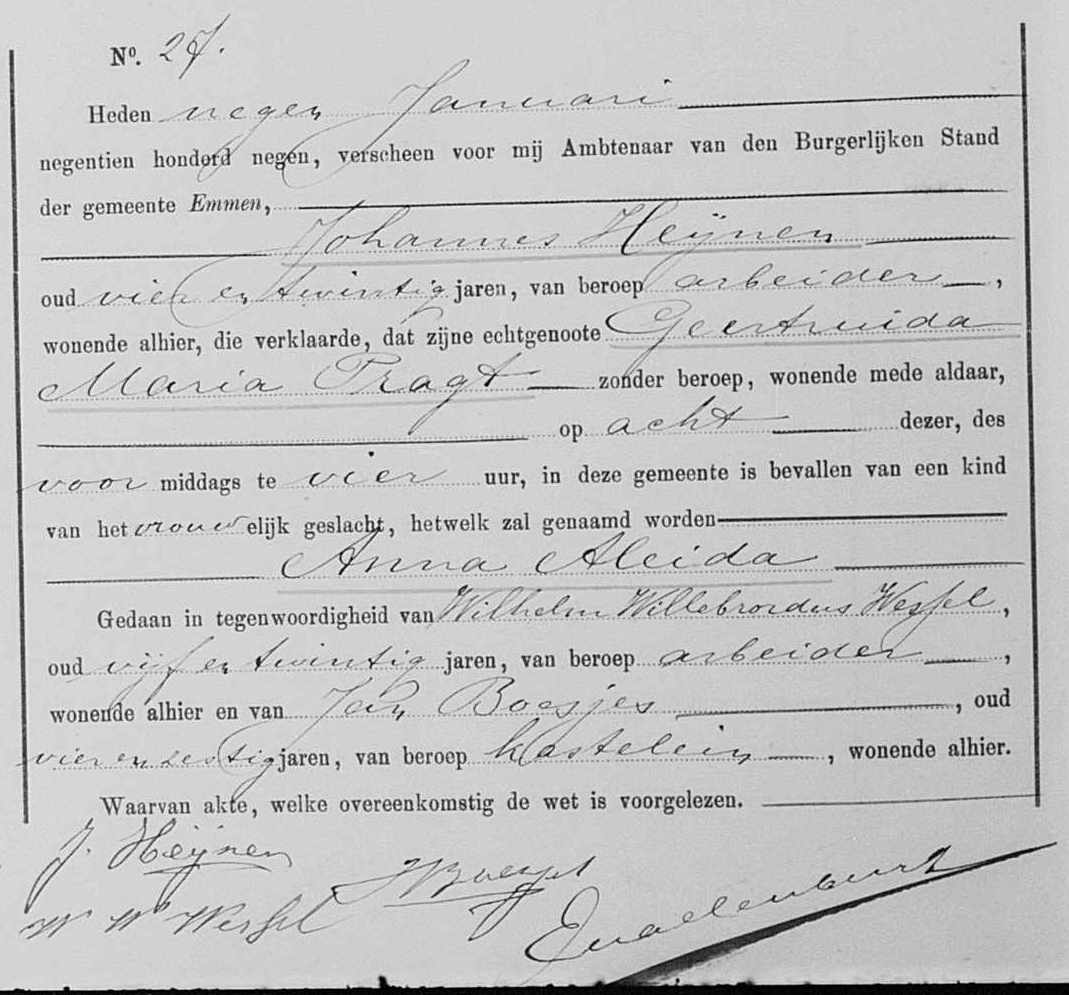 Nº. 27.
Heden negen Januari
negentien honderd negen, verscheen voor mij Ambtenaar van den Burgerlijken Stand
der gemeente Emmen,
Johannes Heijnen
oud vier en twintig jaren, van beroep arbeider,
wonende alhier, die verklaarde, dat zijne echtgenoote Geertruida
Maria Pragt zonder beroep, wonende mede aldaar,
op acht dezer, des
voor middags te vier uur, in deze gemeente is bevallen van een kind
van het vrouwelijk geslacht, hetwelk zal genaamd worden
Anna Aleida
Gedaan in tegenwoordigheid van Wilhelm Willebrordus Wessel,
oud vijf en twintig jaren, van beroep arbeider,
wonende alhier en van Jan Boesjes, oud
vier en zestig jaren, van beroep kastelein, wonende alhier.
Waarvan akte, welke overeenkomstig de wet is voorgelezen.
J. Heijnen
W W Wessel